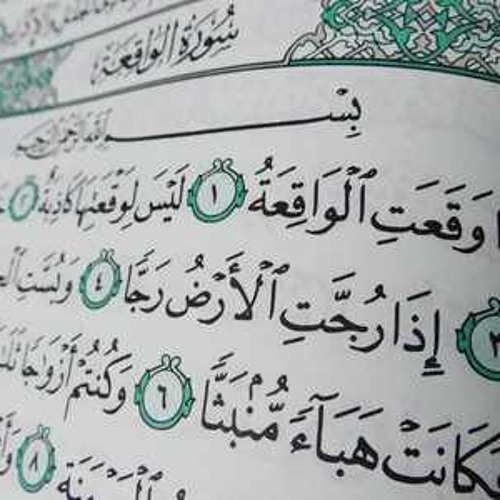 سُورَةُ الوَاقِعَةِ
بِسْمِ اللَّهِ الرَّحْمَٰنِ الرَّحِيمِ
وَقَعَتِ ٱلْوَاقِعَةُ ١ لَيْسَ لِوَقْعَتِهَا كَاذِبَةٌ ٢
٣ إِذَا رُجَّتِ ٱلْأَرْضُ رَجًّا ٤ وَبُسَّتِ
فَكَانَتْ هَبَآءً مُّنۢبَثًّا ٦ وَكُنتُمْ أَزْوَٰجًا
٨